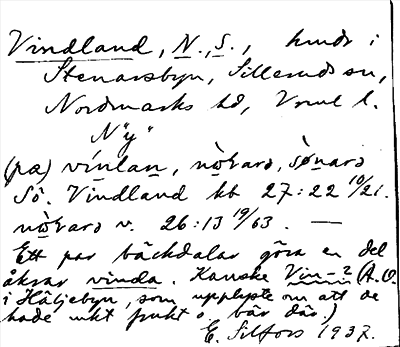 Vindland, N., S., hmdr i
Stenarsbyn, Sillerud sn,
Nordmarks hd, Vrml l.
N"y"
(pæ) vínlan, nòrarə, sònarə
Sô. Vindland kb 27:22 10/21.
nòrarə v. 26:13 19/63. —
Ett par bäckdalar göra en del
åkrar vinda. Kanske Vin-? (A.O.
i Häljebyn, som upplyste om att de
hade mkt frukt o. bär där.)
E. Silfors 1937.